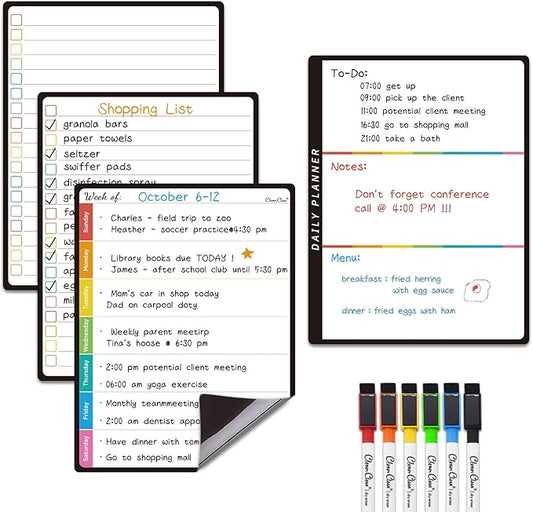 Shopping List
granola bars
paper towels
seltzer
swiffer pads
disinfection spray
Week of: October 6-12
Sunday
· Charles - field trip to zoo
· Heather - soccer practice#4:30 pm
Monday
· Library books due TODAY !
· James - after school club until 5:30 pm
Tuesday
· Mom's car in shop today
Dad on carpool doty
Wednesday
· Weekly parent meetirp
Tina's hoose # 6:30 pm
Thursday
· 2:00 pm potential client meeting
· 06:00 am yoga exercise
Friday
· Monthly teanmeeting
· 2:00 am dentist appo
Saturday
· Have dinner with tom
· Go to shopping mall
DAILY PLANNER
To-Do:
07:00 get up
09:00 pick up the client
11:00 potential client meeting
16:30 go to shopping mall
21:00 take a bath
Notes:
Don't forget conference
call @ 4:00 PM !!!
Menu:
breakfast : fried herring
with egg sauce
dinner : fried eggs with ham